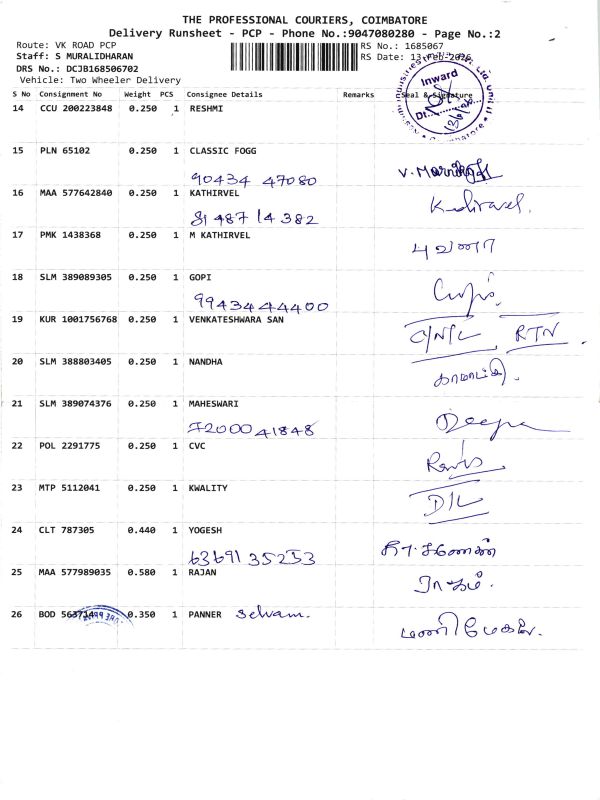 THE PROFESSIONAL COURIERS, COIMBATORE
Delivery Runsheet - PCP - Phone No.:9047080280 - Page No.:2
Route: VK ROAD PCP RS No.: 1685067
Staff: S MURALIDHARAN RS Date: 13-Feb-2026
DRS No.: DCJB168506702
Vehicle: Two Wheeler Delivery
Inward
S No Consignment No Weight PCS Consignee Details Remarks Seal & Signature
14 CCU 200223848 0.250 1 RESHMI
15 PLN 65102 0.250 1 CLASSIC FOGG
90434 47080
16 MAA 577642840 0.250 1 KATHIRVEL Kathirvel.
81487 14382
17 PMK 1438368 0.250 1 M KATHIRVEL
புவனா
18 SLM 389089305 0.250 1 GOPI
9943444400
19 KUR 1001756768 0.250 1 VENKATESHWARA SAN
C/N/L RTN
20 SLM 388803405 0.250 1 NANDHA
காமாட்சி.
21 SLM 389074376 0.250 1 MAHESWARI
7200041848 Deepa
22 POL 2291775 0.250 1 CVC
23 MTP 5112041 0.250 1 KWALITY
D/L
24 CLT 787305 0.440 1 YOGESH
6369135253
25 MAA 577989035 0.580 1 RAJAN
26 BOD 0.350 1 PANNER Selvam.
மணிமேகலை.